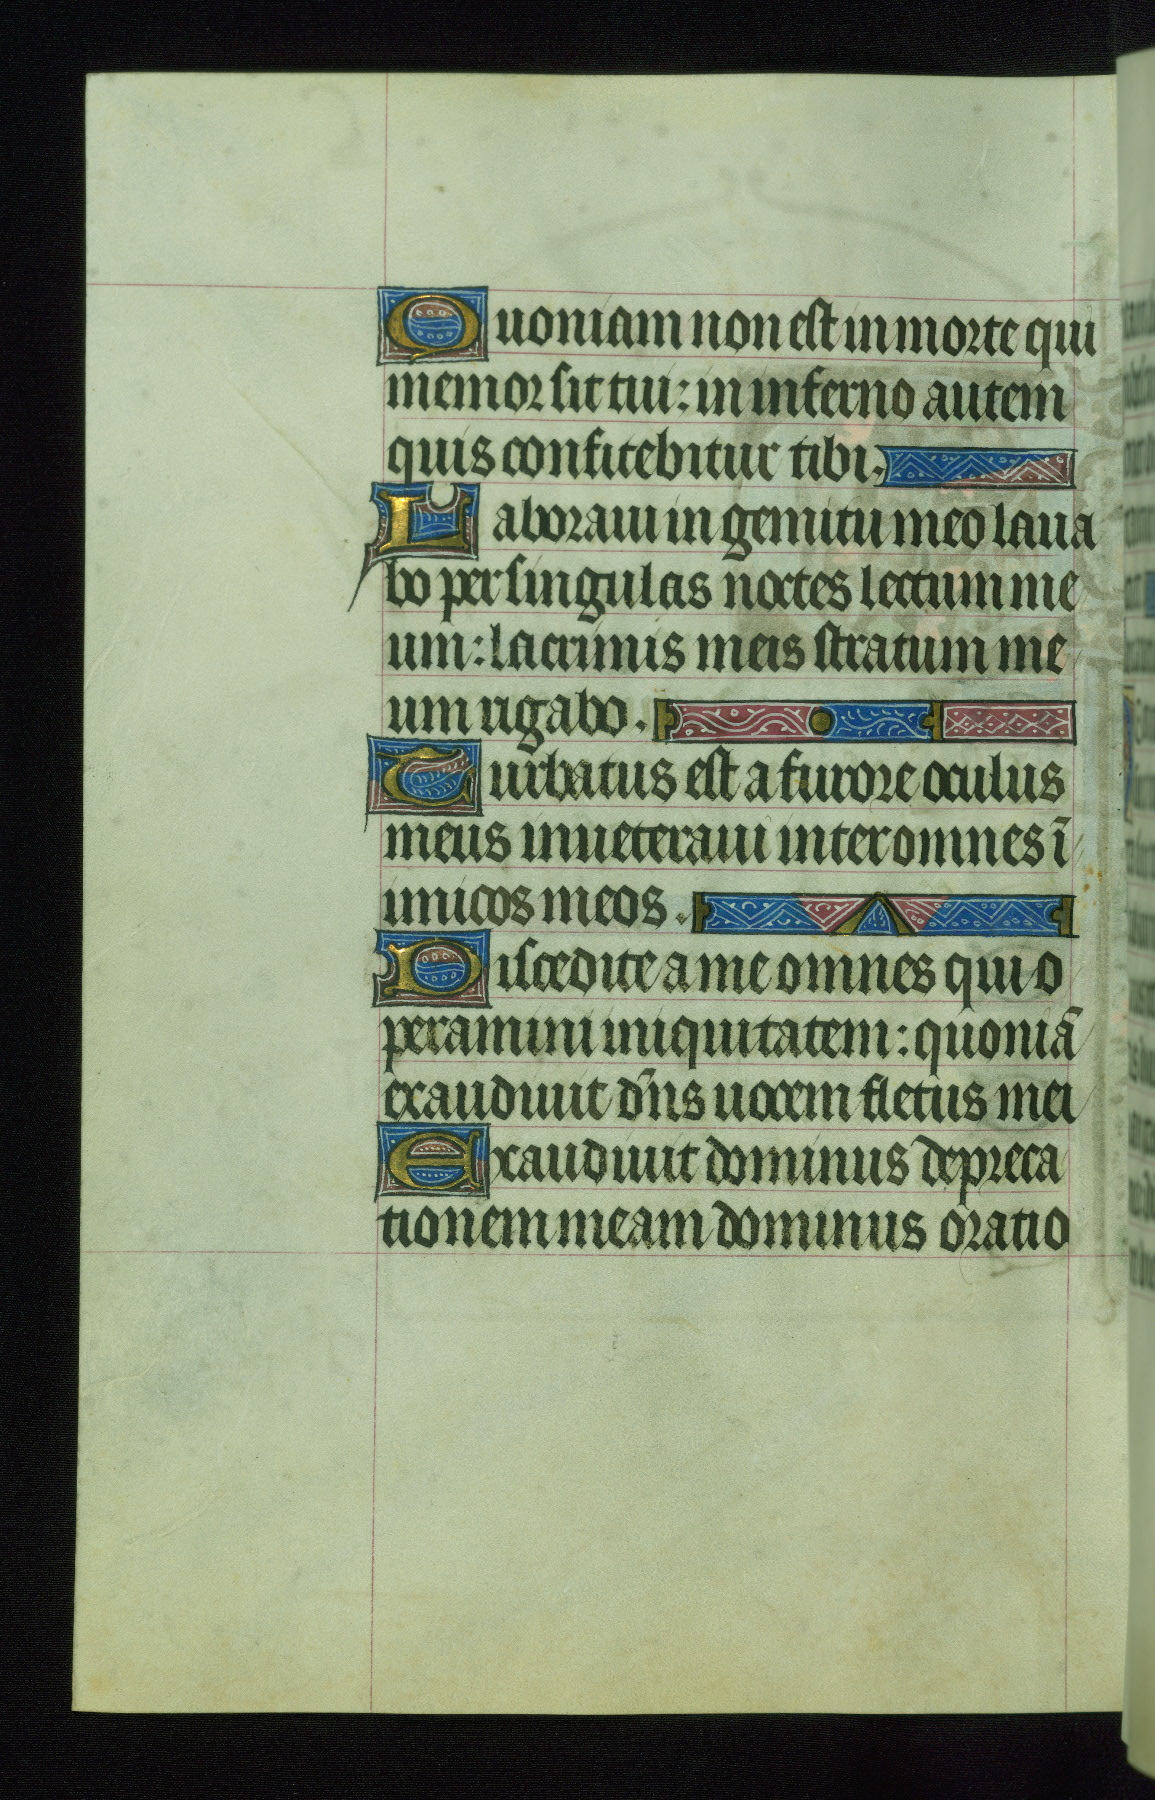 Quoniam non est in morte qui
memor sit tui: in inferno autem
quis confitebitur tibi.
Laboraui in gemitu meo laua
bo per singulas noctes lectum me
um: lacrimis meis stratum me
um rigabo.
Turbatus est a furore oculus
meus inueteraui inter omnes ī
imicos meos.
Discedite a me omnes qui o
peramini iniquitatem: quoniā
exaudiuit dn̄s uocem fletus mei
Exaudiuit dominus depreca
tionem meam dominus oratio